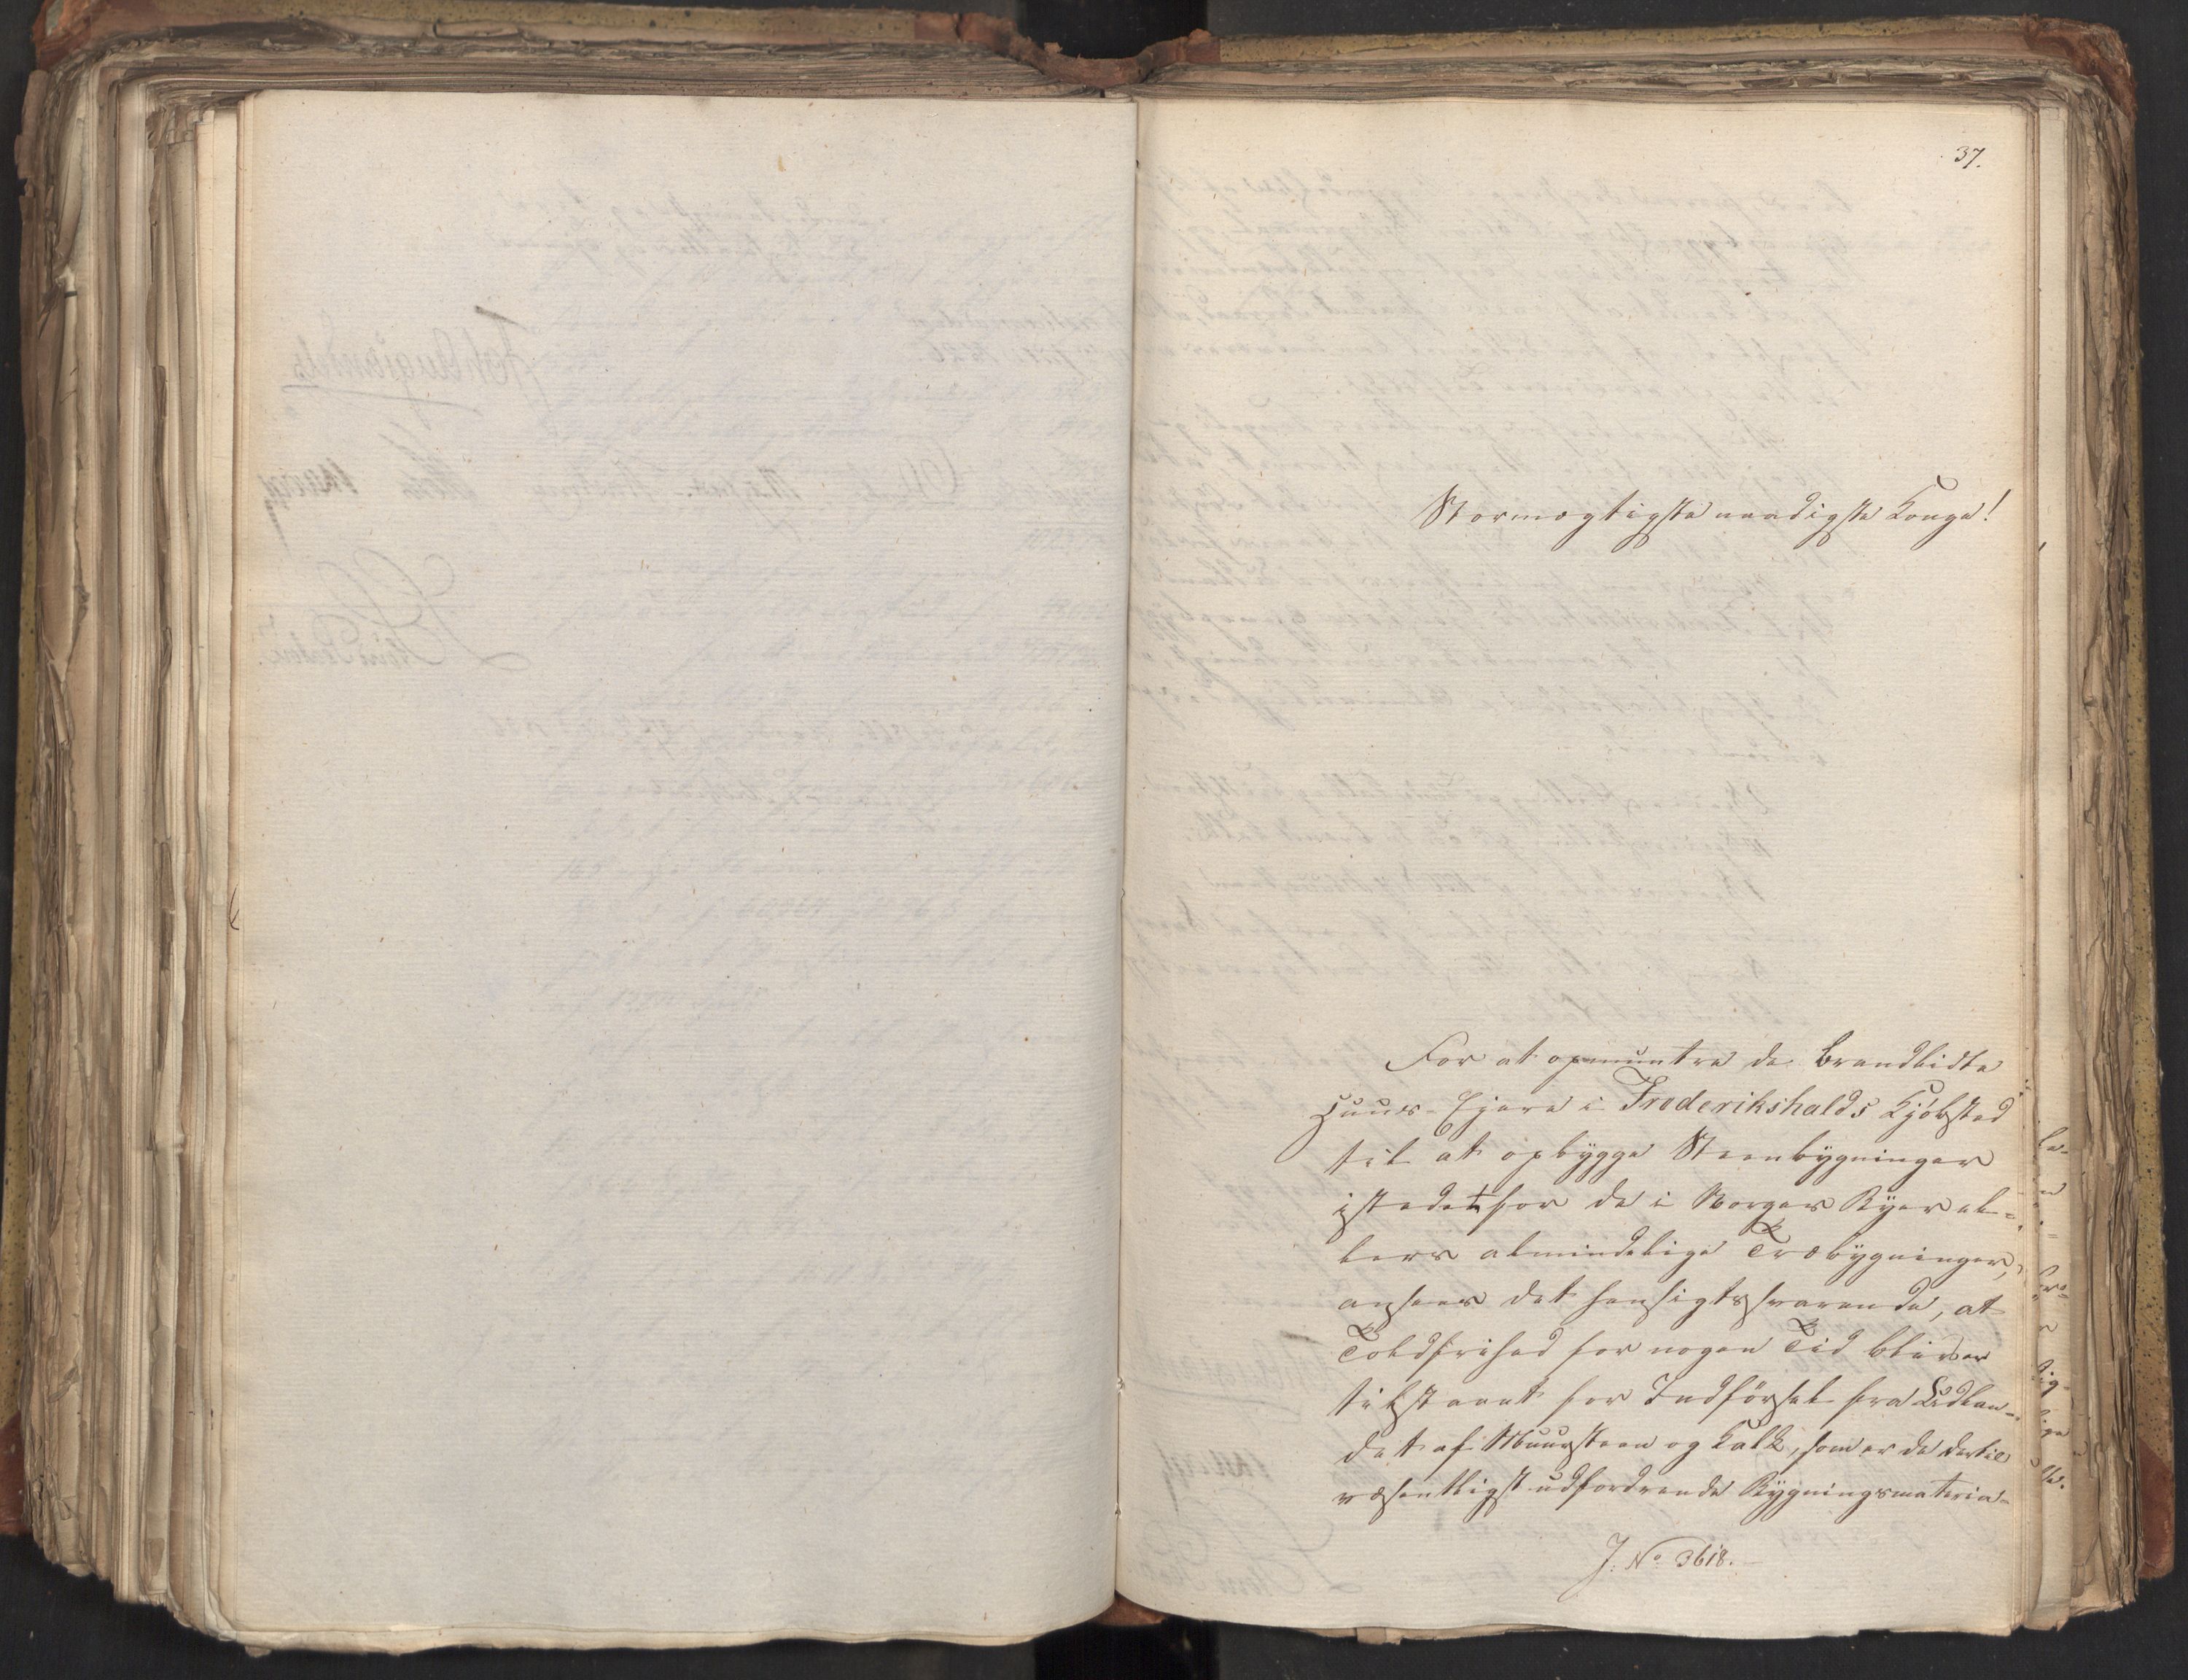 37.
Stormægtigste naadigste Konge!
For at opmuntre de Brandlidte
Huus-Ejere i Frederikshalds Kjöbsted
til at opbygge Steenbygninger
istedetfor de i Norges Byer el-
lers almindelige Træbygninger,
ansees det hensigtssvarende, at
Toldfrihed for nogen Tid bliver
tilstaaet for Indförsel fra Udlan-
det af Muursteen og Kalk, som er de dertil
væsentligst udfordrende Bygningsmateria-
J. No 3618.